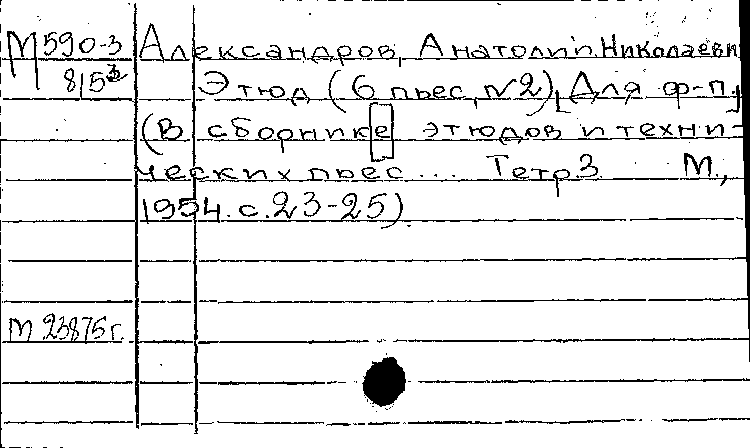 М590-3 Александров, Анатолий Николаевич
8153 Этюд (6 пьес, №2) [Для ф-п.]
(В сборнике этюдов и техни-
ческих пьес... Тетр.3 М.,
1954. с.23-25)
М 23875г.